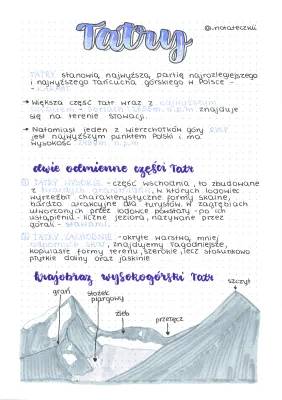 Tatry
@.notateczkii
TATRY stanowią najwyższą partię najrozleglejszego
i najwyższego łańcucha górskiego w Polsce -
- KARPAT
→ Większa część Tatr wraz z najwyższym
znajduje
się na terenie Słowacji.
→ Natomiast jeden z wierzchołków góry RYSY
jest najwyższym punktem Polski i ma
wysokość 2499m n.p.m
dwie odmienne części Tatr
① TATRY WYSOKIE - część wschodnia, to zbudowane
z twardych granitoidów, w których lodowiec
wyrzeźbił charakterystyczne formy skalne,
bardzo atrakcyjne dla turystów. W zagłębiach
utworzonych przez lodowce powstały - po ich
ustąpieniu - liczne jeziora, nazywane przez
górali - stawami.
② TATRY ZACHODNIE - okryte warstwą mniej
odpornych skał, znajdujemy łagodniejsze,
kopulaste formy terenu, szerokie, lecz stosunkowo
płytkie doliny oraz jaskinie
krajobraz wysokogórski Tatr
szczyt
grań
stożek
piargowy
żleb
przełęcz